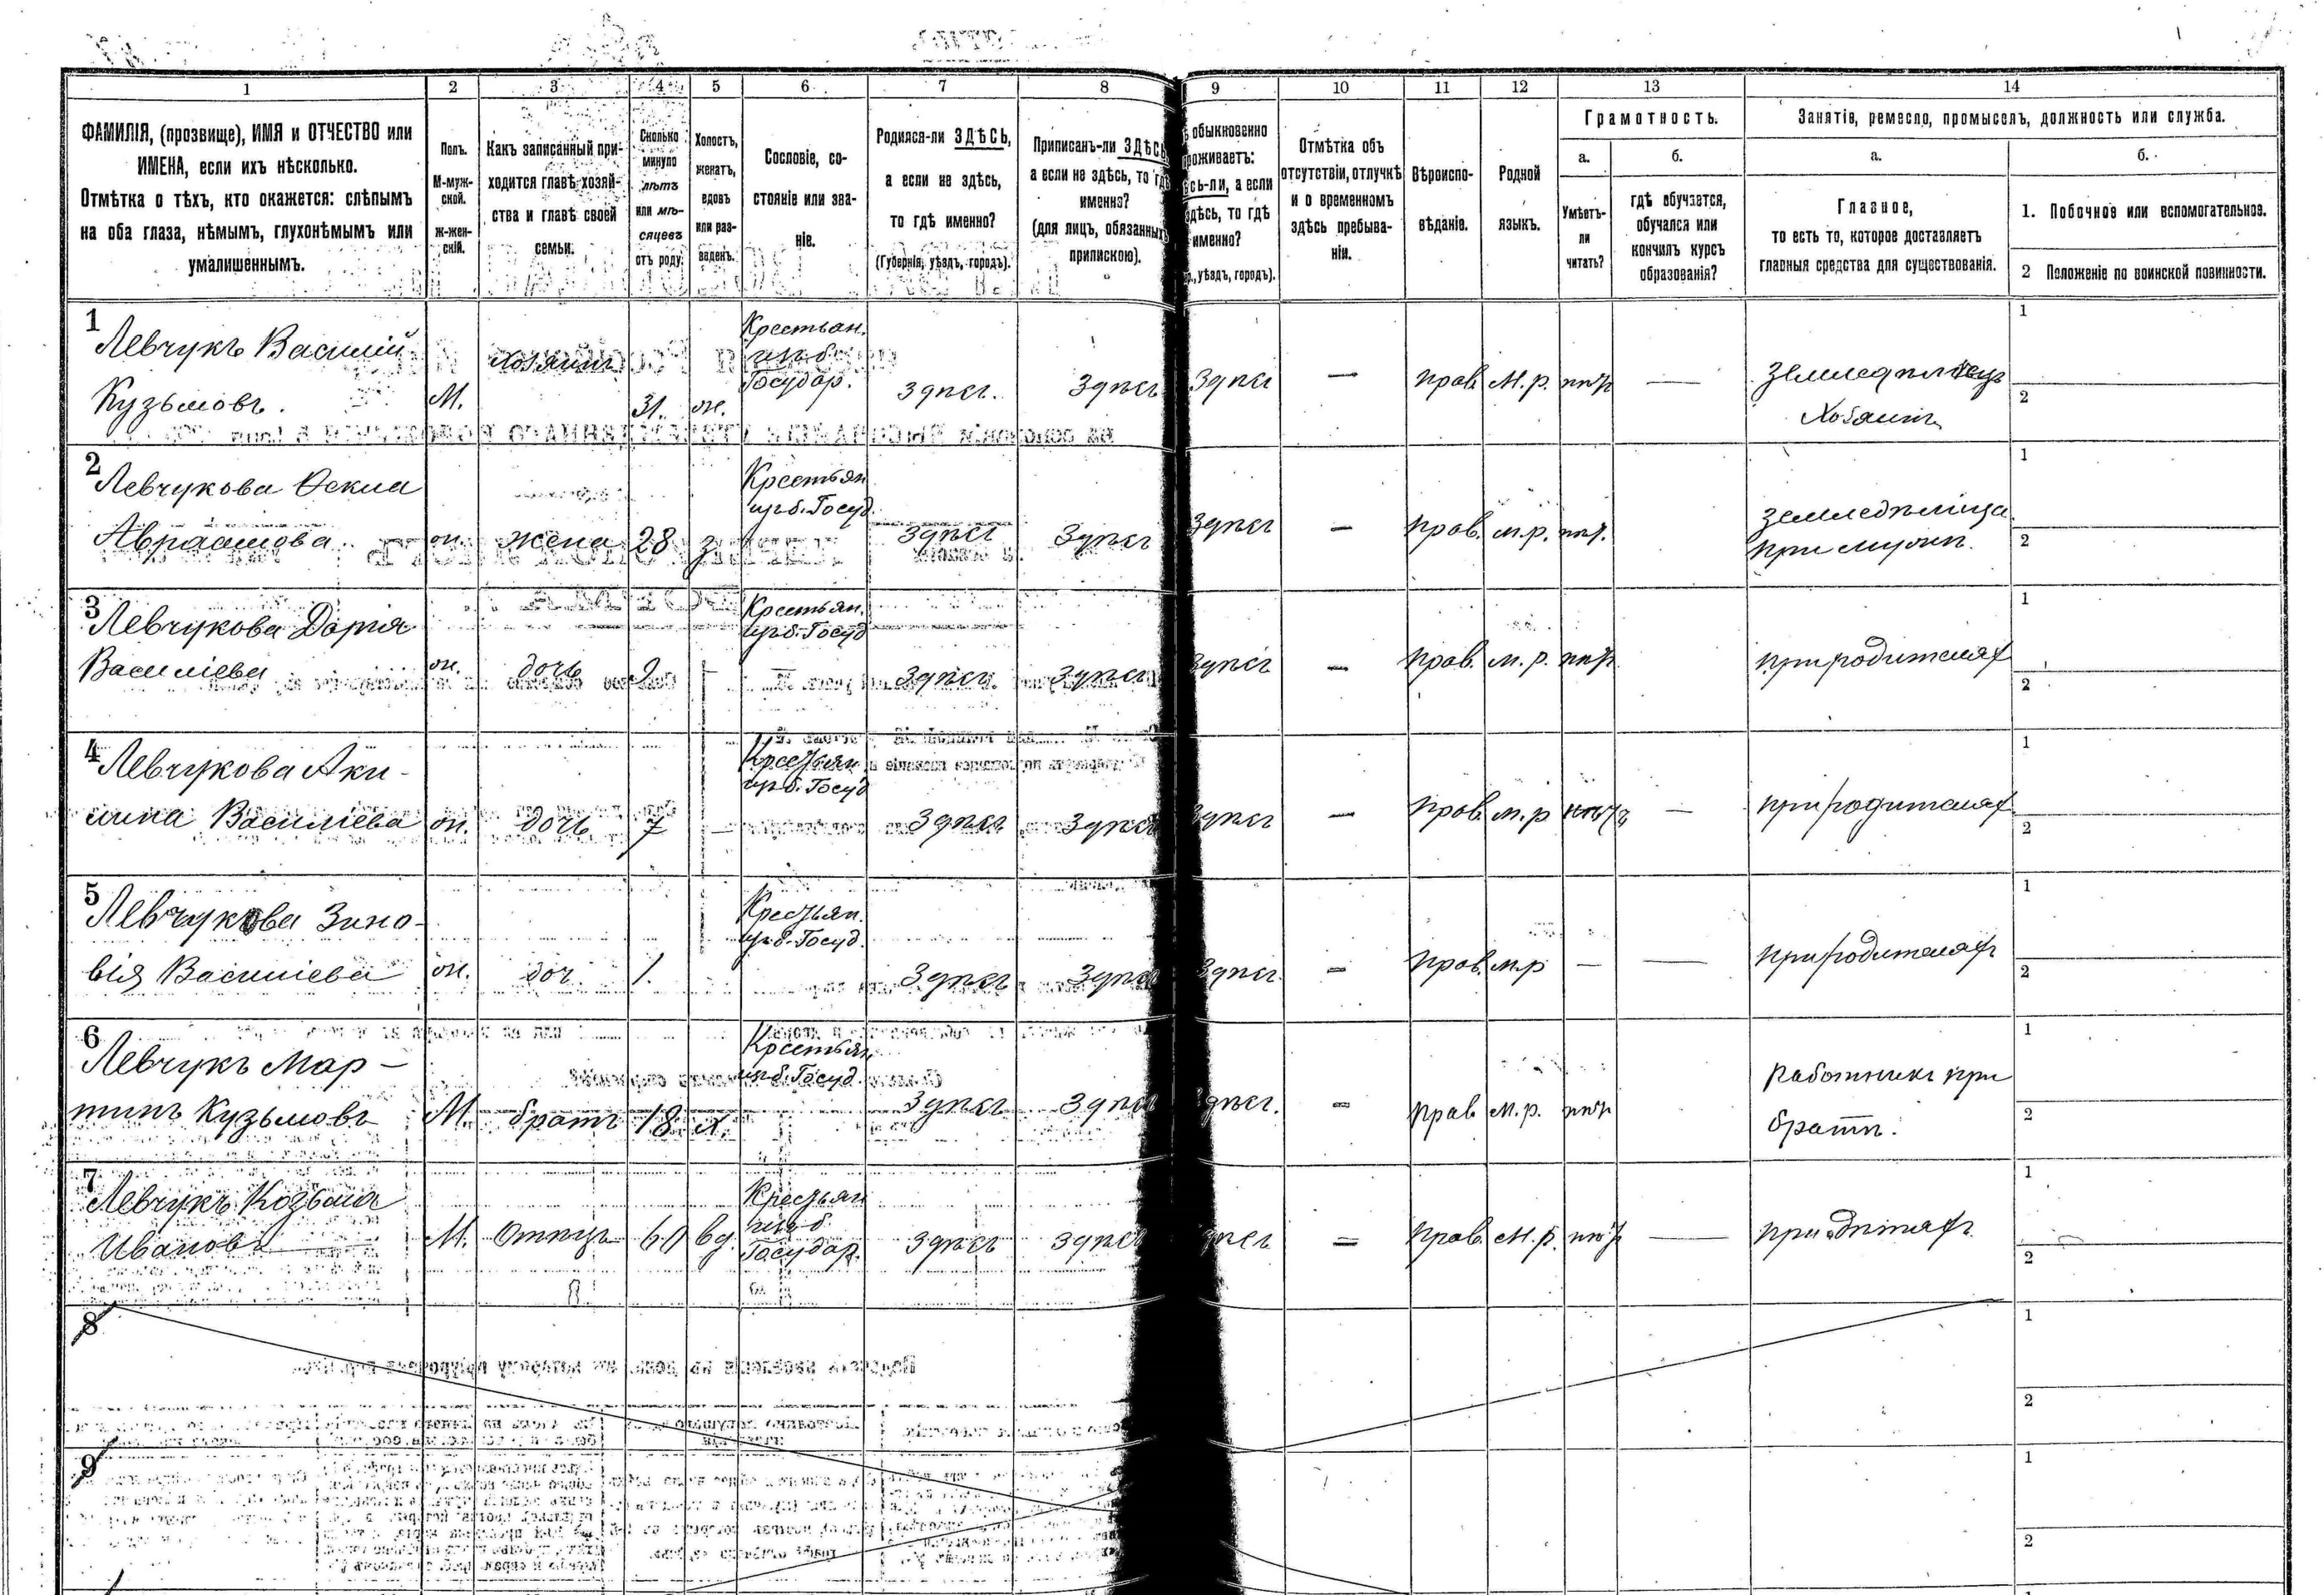 1 2 3 4 5 6 7 8 9 10 11 12 13 14
ФАМИЛІЯ, (прозвище), ИМЯ и ОТЧЕСТВО или
ИМЕНА, если ихъ нѣсколько.
Отмѣтка о тѣхъ, кто окажется: слѣпымъ
на оба глаза, нѣмымъ, глухонѣмымъ или
умалишеннымъ.
Полъ.
М-муж-
ской.
ж-жен-
скій.
Какъ записанный при-
ходится главѣ хозяй-
ства и главѣ своей
семьи.
Сколько
минуло
лѣтъ
или мѣ-
сяцевъ
отъ роду.
Холостъ,
женатъ,
вдовъ
или раз-
веденъ.
Сословіе, со-
стояніе или зва-
ніе.
Родился-ли ЗДѢСЬ,
а если не здѣсь,
то гдѣ именно?
(Губернія, уѣздъ, городъ).
Приписанъ-ли ЗДѢСЬ
а если не здѣсь, то гдѣ
именно?
(для лицъ, обязанныхъ
припискою).
обыкновенно
роживаетъ:
сь-ли, а если
здѣсь, то гдѣ
именно?
, уѣздъ, городъ).
Отмѣтка объ
отсутствіи, отлучкѣ
и о временномъ
здѣсь пребыва-
ніи.
Вѣроиспо-
вѣданіе.
Родной
языкъ.
Грамотность.
а. б.
Умѣетъ-
ли
читать?
гдѣ обучается,
обучался или
кончилъ курсъ
образованія?
Занятіе, ремесло, промыселъ, должность или служба.
а. б.
Главное,
то есть то, которое доставляетъ
главныя средства для существованія.
1. Побочное или вспомогательное.
2 Положеніе по воинской повинности.
1
Левчукъ Василій
Кузьмовъ.
М.
хозяинъ
31. ж.
Крестьян.
изъ б.
Государ.
Здѣсь. Здѣсь Здѣсь — прав. М. р. нѣтъ —
Земледѣлецъ
Хозяинъ
1
2
2
Левчукова Ѳекла
Авраамова.
ж. жена 28 з.
Крестьян
изъ б. Госуд.
Здѣсь Здѣсь Здѣсь — прав. м. р. нѣт.
Земледѣлица
при мужѣ.
1
2
3
Левчукова Дарія
Василіева
ж. дочь 9 —
Крестьян.
изъ б. Госуд
Здѣсь. Здѣсь Здѣсь — прав. м. р. нѣтъ
при родителях
1
2
4
Левчукова Аки-
лина Василіева
ж. дочь 7 —
Крестьян
из б. Госуд
Здѣсь Здѣсь Здѣсь — прав. м. р нѣтъ —
при родителях
1
2
5
Левчукова Зино-
вія Василіева
ж. доч. 1.
Крестьян.
из б. Госуд.
Здѣсь Здѣсь Здѣсь. — прав. м.р — —
при родителях
1
2
6
Левчукъ Мар-
тинъ Кузьмовъ
М. братъ 18 х.
Крестьян.
из б. Госуд.
Здѣсь Здѣсь Здѣсь. — прав м. р. нѣтъ
работникъ при
братѣ.
1
2
7
Левчукъ Козьма
Ивановъ
М. Отецъ 60 вд.
Крестьян
изъ б.
Государ.
Здѣсь Здѣсь Здѣсь — прав. М. р. нѣтъ —
при дѣтяхъ
1
2
8
1
2
9
1
2